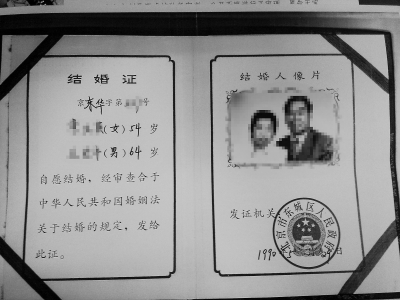 结婚证
京东华字第 号
(女)54岁
(男)64岁
自愿结婚，经审查合于
中华人民共和国婚姻法
关于结婚的规定，发给
此证。
结婚人像片
发证机关
北京市东城区人民政府
1990